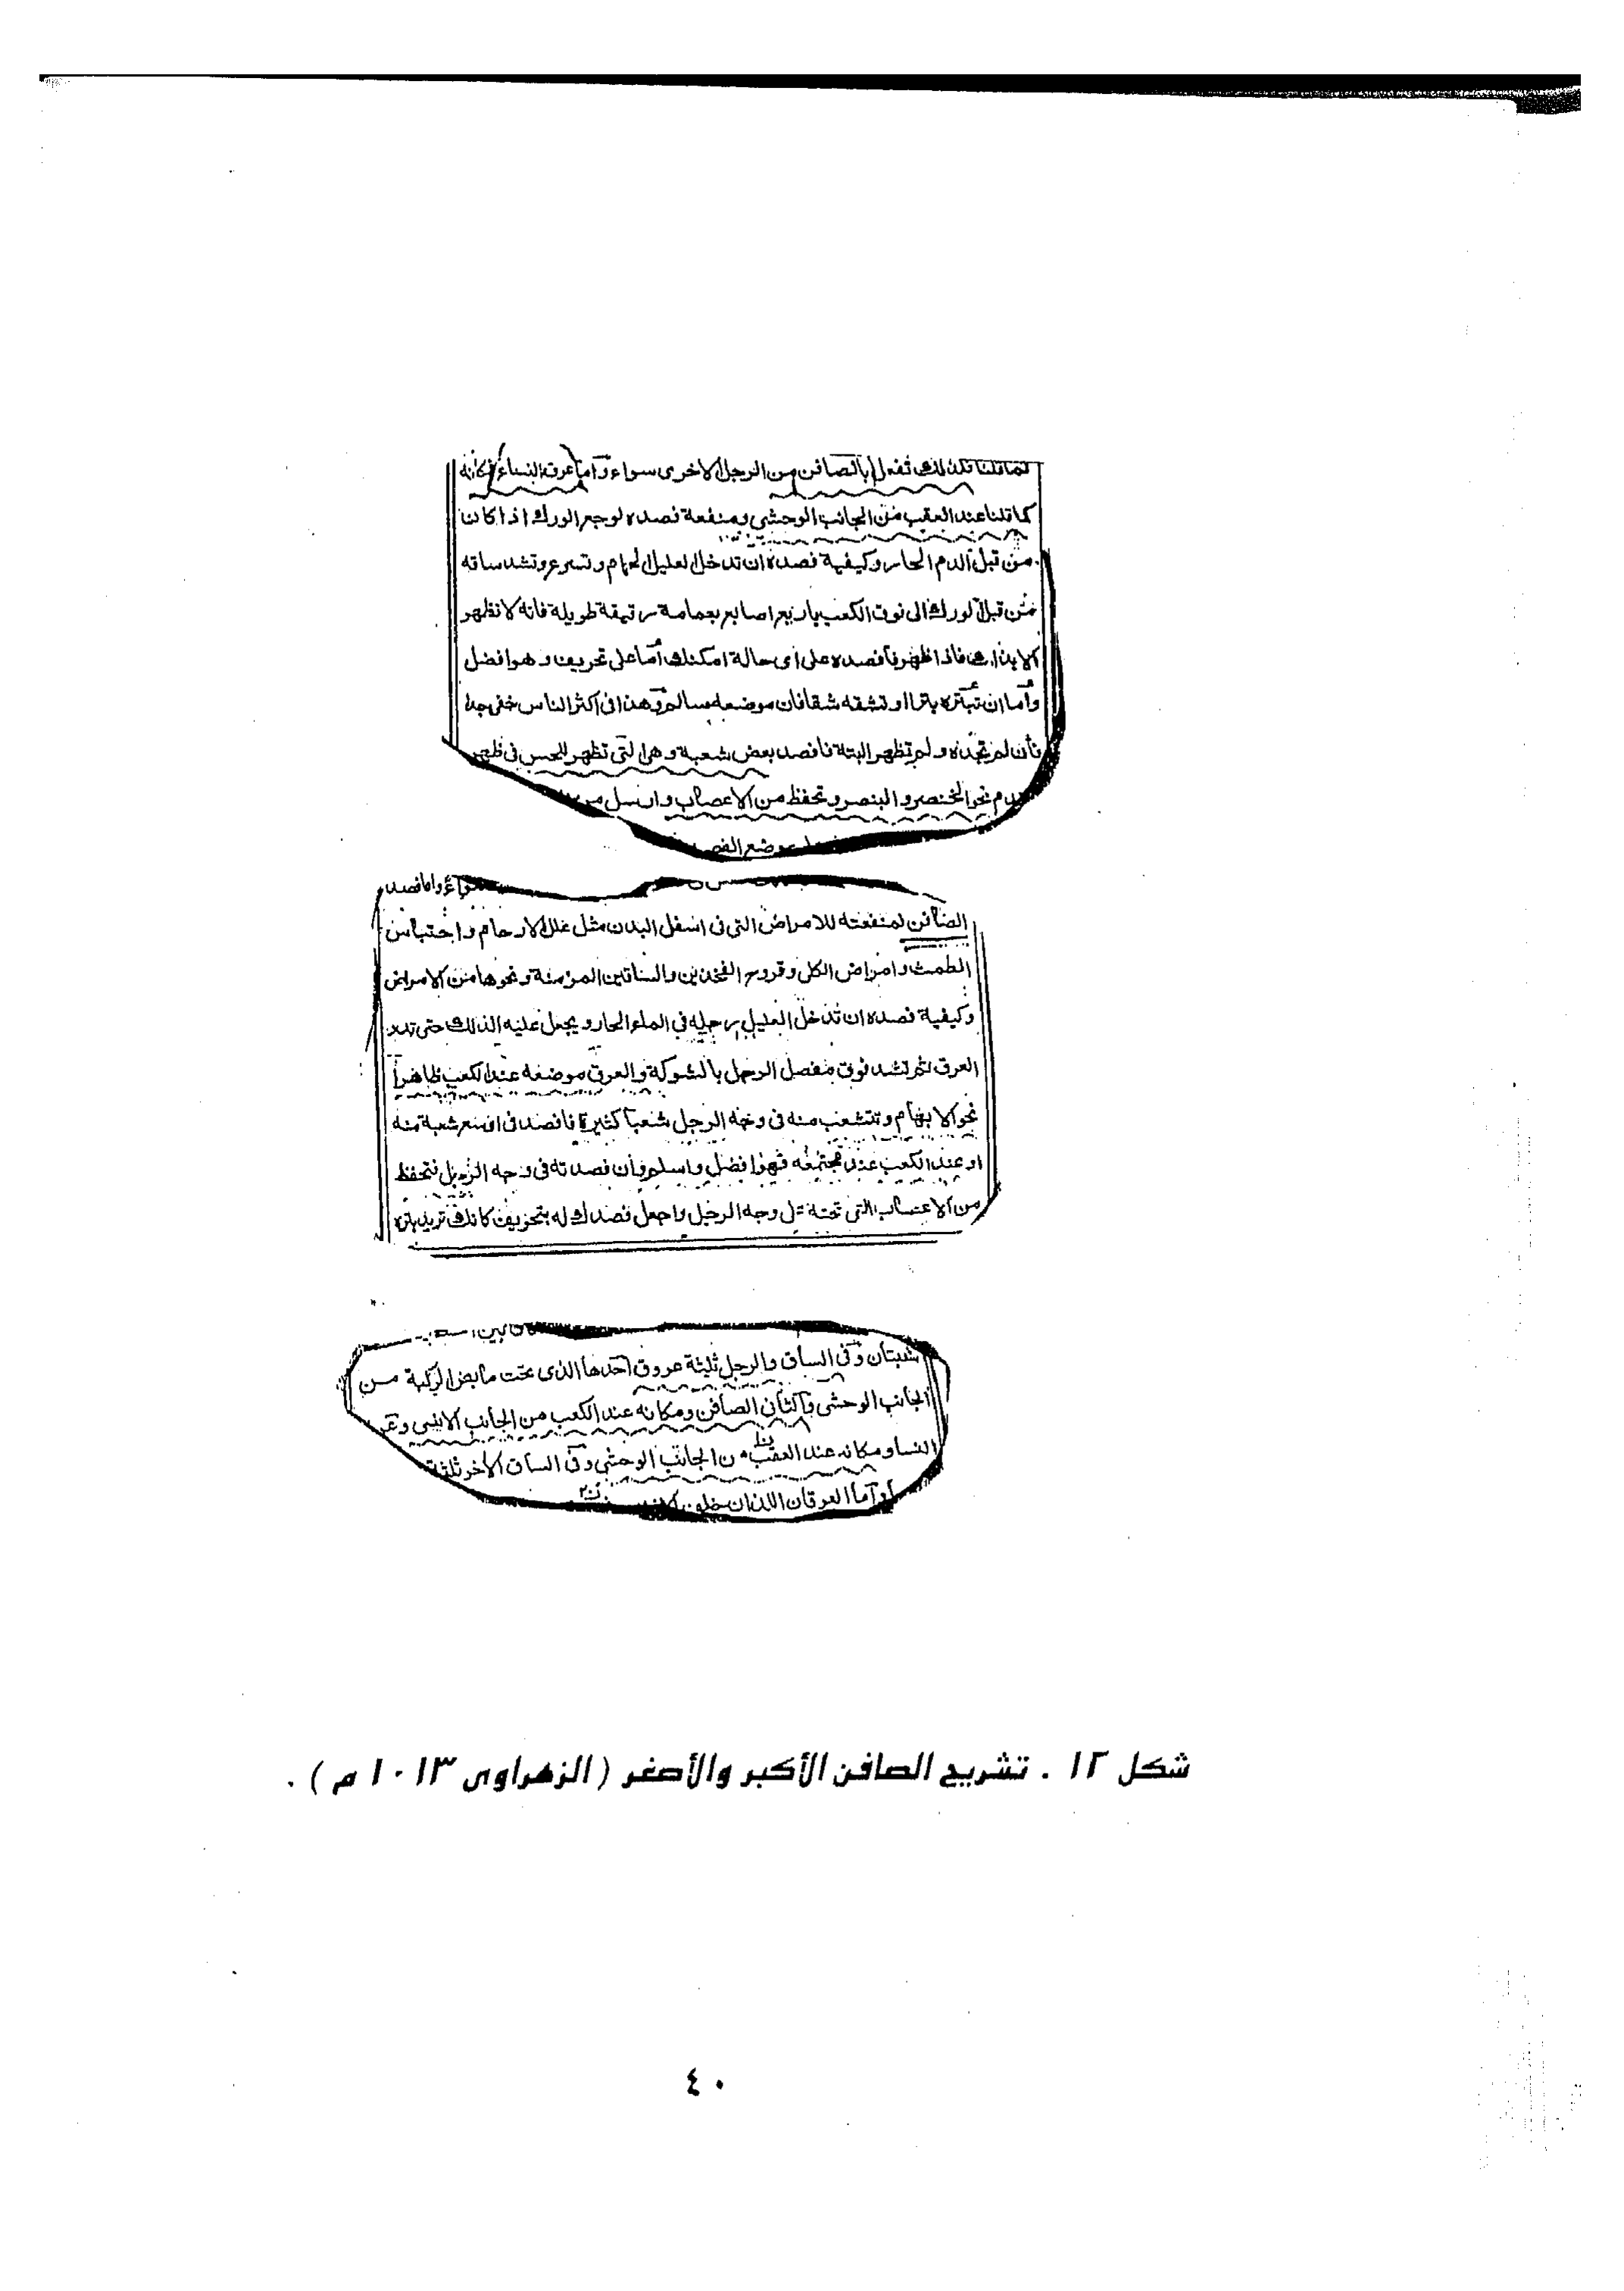 كما قلنا تلك لذلك ففعل بالصافن من الرجل الاخرى سواء وأما عرق النساء فكانه
كما قلنا عند العقب من الجانب الوحشي ومنفعة فصده لوجع الورك اذا كان
من قبل الدم الحار وكيفية فصده ان تدخل العليل الحمام وتسرع وتشد ساقه
من قبل الورك الى فوق الكعب باربع اصابع بعمامة رقيقة طويلة فانه لا تظهر
الا بذلك فاذا ظهر فافصده على أى حالة امكنك أما على تحريف وهو افضل
وأما ان تبتره بترا او تشقه شقا فان موضعه سالم وهذا فى اكثر الناس خفى جدا
فأن لم تجده ولم تظهر البتة فافصد بعض شعبة وهى التى تظهر للحس فى ظهر
نحو الخنصر والبنصر وتحفظ من الاعصاب وارسل من
موضع الفصد
واما فصد
الصافن لمنفعته للامراض التى فى اسفل البدن مثل علل الارحام واحتباس
الطمث وامراض الكلى وقروح الفخذين والساقين المزمنة ونحوها من الامراض
وكيفية فصده ان تدخل العليل رجليه فى الماء الحار ويجعل عليه الذلك حتى تدر
العرق ثم تشد فوق مفصل الرجل بالشوكة والعرق موضعه عند الكعب ظاهرا
نحو الابهام وتتشعب منه فى وجه الرجل شعبا كثيرة فافصد فى اوسع شعبة منه
او عند الكعب عند مجتمعه فهو افضل واسلم وأن فصدته فى وجه الرجل فتحفظ
من الاعصاب التى تحته على وجه الرجل واجعل فصدك له بتحريف كانك تريد بتره
شبتان وفى الساق والرجل ثلثة عروق احدها الذى تحت مابض الركبة من
الجانب الوحشى والثانى الصافن ومكانه عند الكعب من الجانب الانسى وعرق
النسا ومكانه عند العقب من الجانب الوحشى وفى الساق الأخر ثلثة
وأما العرقان اللذان خلف
شكل ١٢ . تشريح الصافن الأكبر والأصغر ( الزهراوى ١٠١٣ م ) .
٤٠